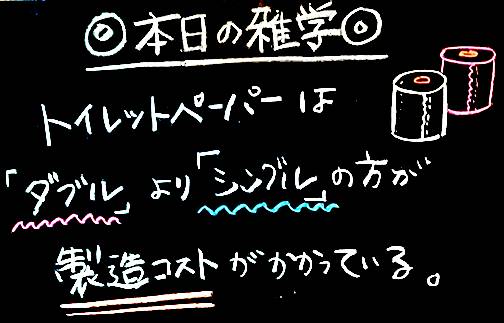 ◎本日の雑学◎
トイレットペーパーは
「ダブル」より「シングル」の方が
製造コストがかかっている。